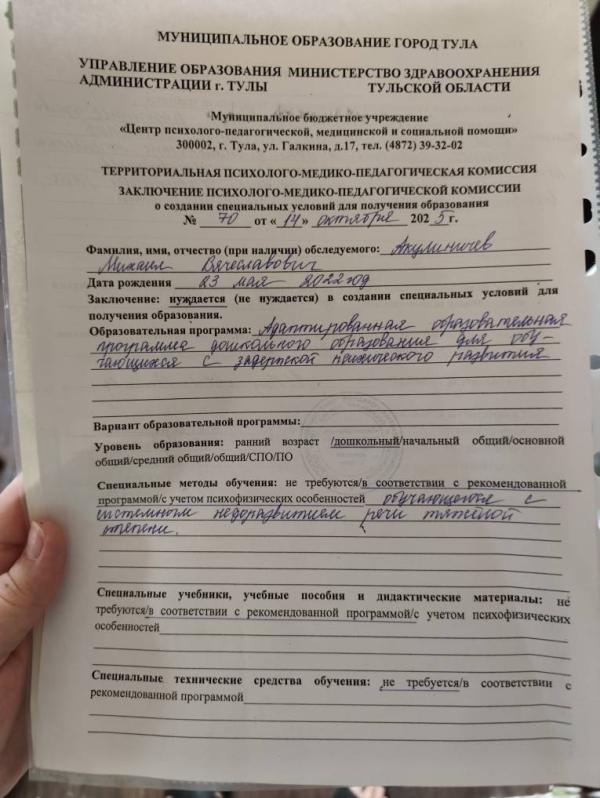 МУНИЦИПАЛЬНОЕ ОБРАЗОВАНИЕ ГОРОД ТУЛА
УПРАВЛЕНИЕ ОБРАЗОВАНИЯ МИНИСТЕРСТВО ЗДРАВООХРАНЕНИЯ
АДМИНИСТРАЦИИ г. ТУЛЫ ТУЛЬСКОЙ ОБЛАСТИ
Муниципальное бюджетное учреждение
«Центр психолого-педагогической, медицинской и социальной помощи»
300002, г. Тула, ул. Галкина, д.17, тел. (4872) 39-32-02
ТЕРРИТОРИАЛЬНАЯ ПСИХОЛОГО-МЕДИКО-ПЕДАГОГИЧЕСКАЯ КОМИССИЯ
ЗАКЛЮЧЕНИЕ ПСИХОЛОГО-МЕДИКО-ПЕДАГОГИЧЕСКОЙ КОМИССИИ
о создании специальных условий для получения образования
№ 70 от «14» октября 2025г.
Фамилия, имя, отчество (при наличии) обследуемого: Акулиничев
Михаил Вячеславович
Дата рождения 23 мая 2022год
Заключение: нуждается (не нуждается) в создании специальных условий для
получения образования.
Образовательная программа: Адаптированная образовательная
программа дошкольного образования для обу-
чающихся с задержкой психического развития
Вариант образовательной программы:
Уровень образования: ранний возраст /дошкольный/начальный общий/основной
общий/средний общий/общий/СПО/ПО
Специальные методы обучения: не требуются/в соответствии с рекомендованной
программой/с учетом психофизических особенностей обучающегося с
системным недоразвитием речи тяжёлой
степени.
Специальные учебники, учебные пособия и дидактические материалы: не
требуются/в соответствии с рекомендованной программой/с учетом психофизических
особенностей
Специальные технические средства обучения: не требуется/в соответствии с
рекомендованной программой